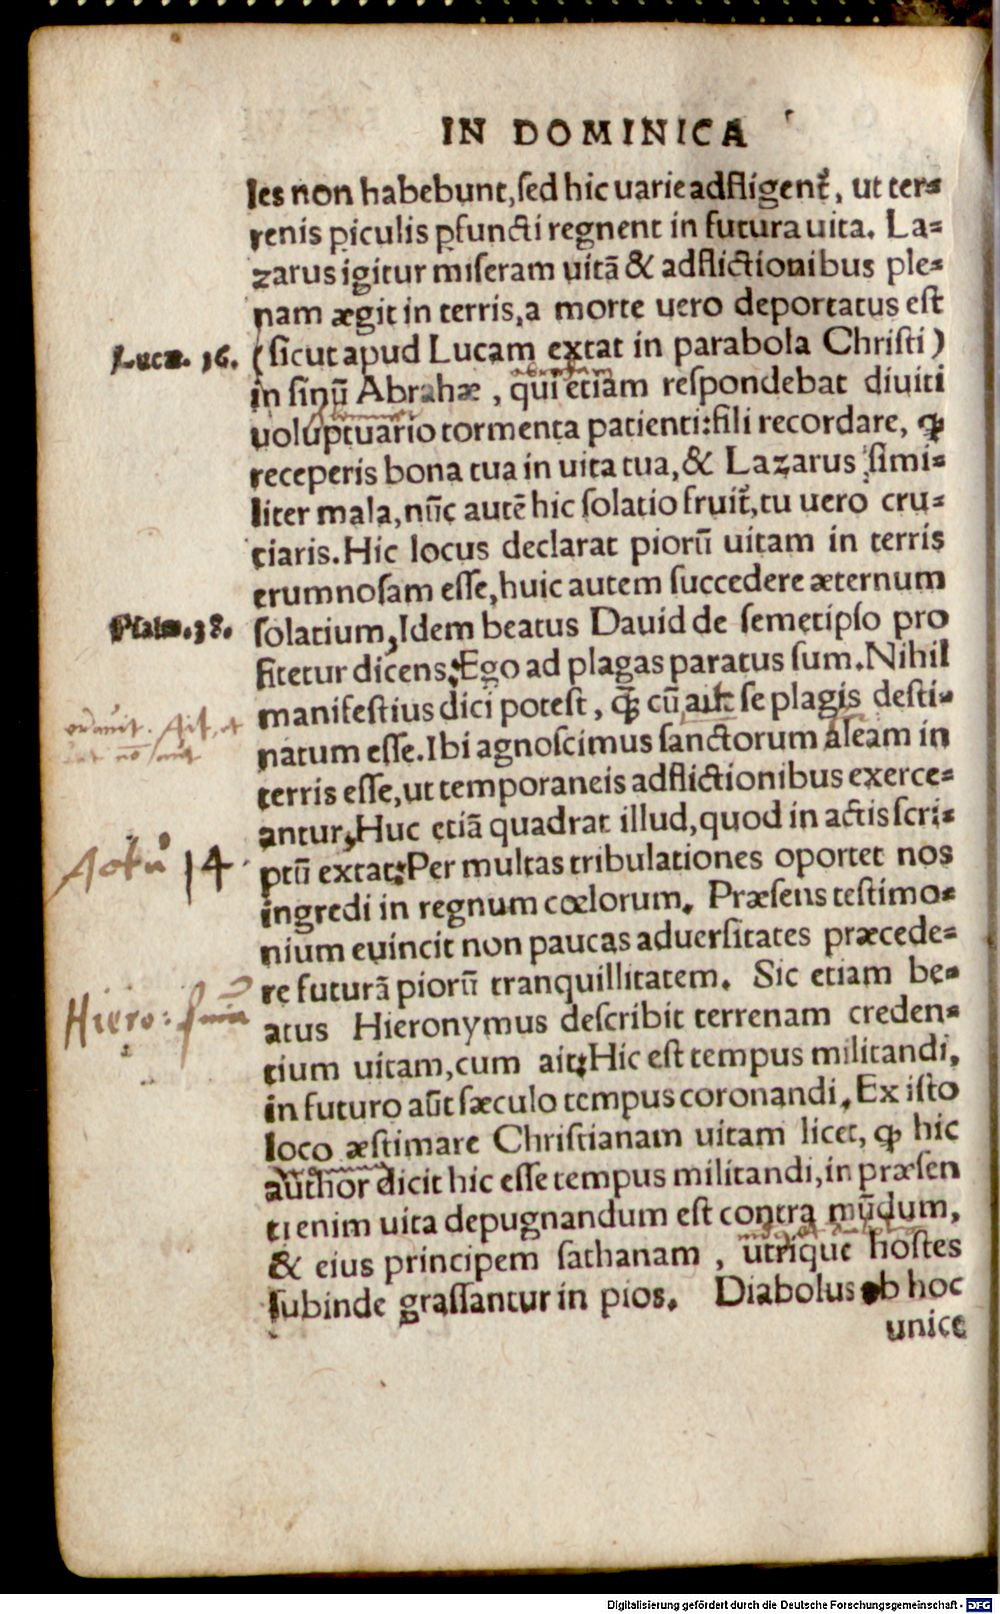 IN DOMINICA
les non habebunt, sed hic uarie adfligent᷑, ut ter⸗
renis ꝑiculis ꝑfuncti regnent in futura uita. La⸗
zarus igitur miseram uitã & adflictionibus ple⸗
nam ægit in terris, a morte uero deportatus est
Lucæ. 16.
(sicut apud Lucam extat in parabola Christi)
in sinũ Abrahæ, qui etiam respondebat diuiti
uoluptuario tormenta patienti: fili recordare, ꝙ
receperis bona tua in uita tua, & Lazarus simi⸗
liter mala, nũc autẽ hic solatio fruit᷑, tu uero cru⸗
ciaris. Hic locus declarat piorũ uitam in terris
erumnosam esse, huic autem succedere æternum
Psalm. 38.
solatium, Idem beatus Dauid de semetipso pro
fitetur dicens: Ego ad plagas paratus sum. Nihil
manifestius dici potest, ꝙ̃ cũ ait se plagis desti⸗
natum esse. Ibi agnoscimus sanctorum aleam in
terris esse, ut temporaneis adflictionibus exerce⸗
antur, Huc etiã quadrat illud, quod in actis scri⸗
Actũ 14
ptũ extat: Per multas tribulationes oportet nos
ingredi in regnum cœlorum. Præsens testimo⸗
nium euincit non paucas aduersitates præcede⸗
re futurã piorũ tranquillitatem. Sic etiam be⸗
Hiero:
atus Hieronymus describit terrenam creden⸗
tium uitam, cum ait: Hic est tempus militandi,
in futuro aũt sæculo tempus coronandi. Ex isto
loco æstimare Christianam uitam licet, ꝙ hic
author dicit hic esse tempus militandi, in præsen
ti enim uita depugnandum est contra mũdum,
& eius principem sathanam, utrique hostes
subinde grassantur in pios. Diabolus ob hoc
unice
Digitalisierung gefördert durch die Deutsche Forschungsgemeinschaft - DFG